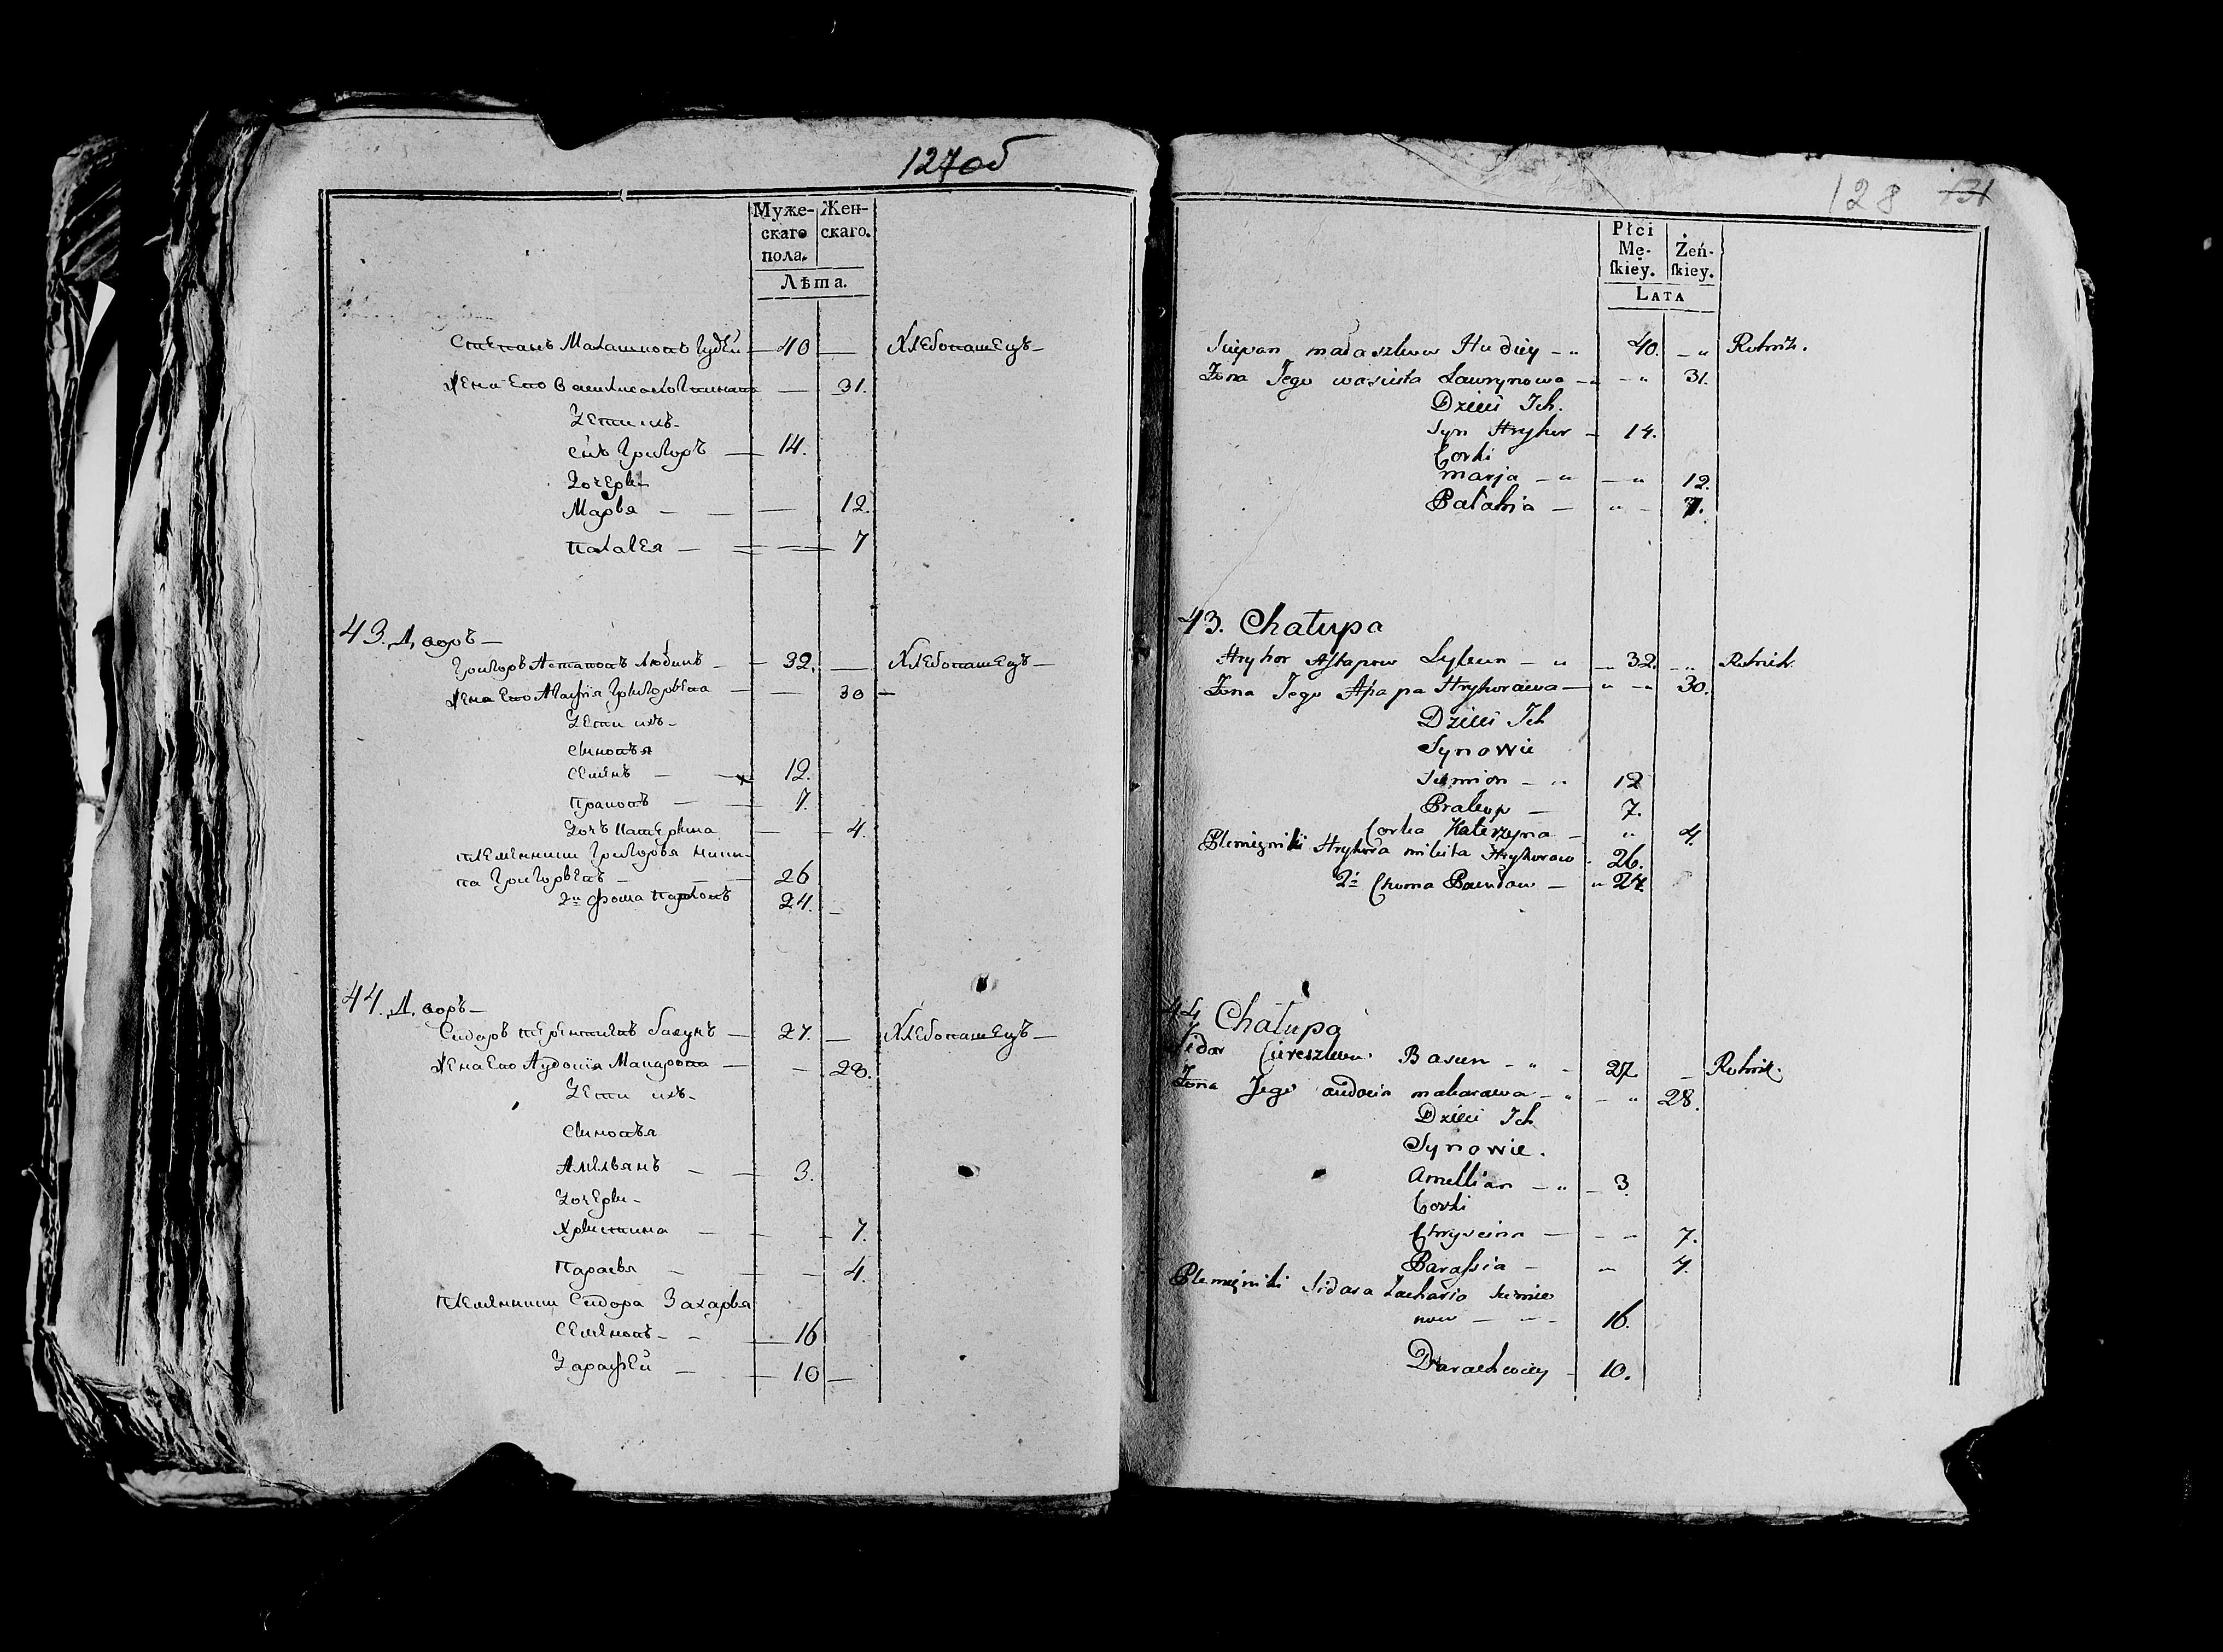 127об
Муже- Жен-
скаго скаго.
пола.
Лѣта.
Степанъ Малашковъ Гудѣй — 40 — Хлебопашецъ —
Жена Его — 31.
Дети ихъ —
Сынъ Григоръ — 14.
Дочери
Марья — — — 12.
Палагея — 7
43. Дворъ —
Григоръ Астаповъ — 32. — Хлебопашецъ —
Жена Его Агафія Григорьева — — 30 —
Дети ихъ —
Сыновья
Семенъ — 12.
Пракопъ — — 7.
Дочь Катерина — — 4.
племянники Григорья Мики-
та Григорьевъ — — — 26
2й Фома Павловъ 24. —
44. Дворъ —
Сидоръ Терентьевъ Басунъ — 27. — Хлебопашецъ —
Жена Его Авдотья Макарова — — 28.
Дети ихъ —
Сыновья
Амельянъ — — 3.
Дочери —
Христина — — — 7.
Парасья — — — 4.
Племянники Сидора Захарья
Семеновъ — — — 16
Дарафей — — 10 —
128 131
Płci
Mę- Żeń-
skiey. skiey.
Lata
Sciepan Małaszkow Hudziey — „ 40. — „ Rolnik.
Żona Jego Wasilisa Ławrynowa — — „ 31.
Dzieci Ich.
Syn Hryhor — 14.
Corki
Marja — „ — „ 12.
Pałahia — „ — 7.
43. Chałupa
Hryhor Astapow — „ — 32. — „ Rolnik.
Żona Jego Ahapa Hryhorowa — „ — „ 30.
Dzieci Ich
Synowie
Siemion — „ 12
Prakop — 7.
Corka Katerzyna — „ 4.
Plemięniki Hryhora Mikita Hryhorow — 26.
2i Choma Pawłow — „ 24.
44 Chałupa
Sidor Ciereszkow Basun — „ — 27. — Rolnik.
Żona Jego Audocia Makarowa — „ — „ 28.
Dzieci Ich
Synowie.
Amellian — „ — 3.
Corki
Chryscina — — — 7.
Parassia — „ 4.
Plemięniki Sidora Zacharja Siemie
now — „ — 16.
Darachwiey — 10.